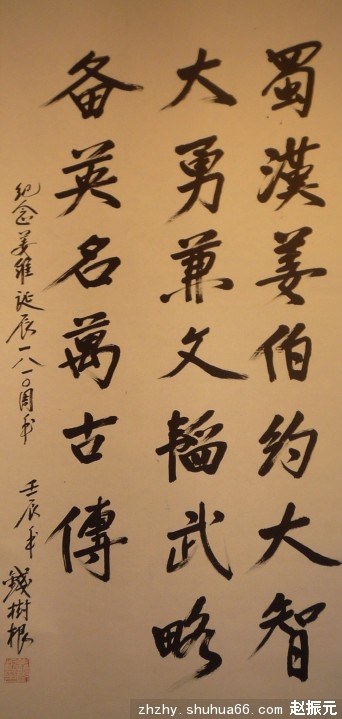 蜀漢姜伯约大智
大勇兼文韜武略
备英名萬古傳
纪念姜維诞辰一八一〇周年 壬辰年 錢樹根
zhzhy.shuhua66.com 赵振元